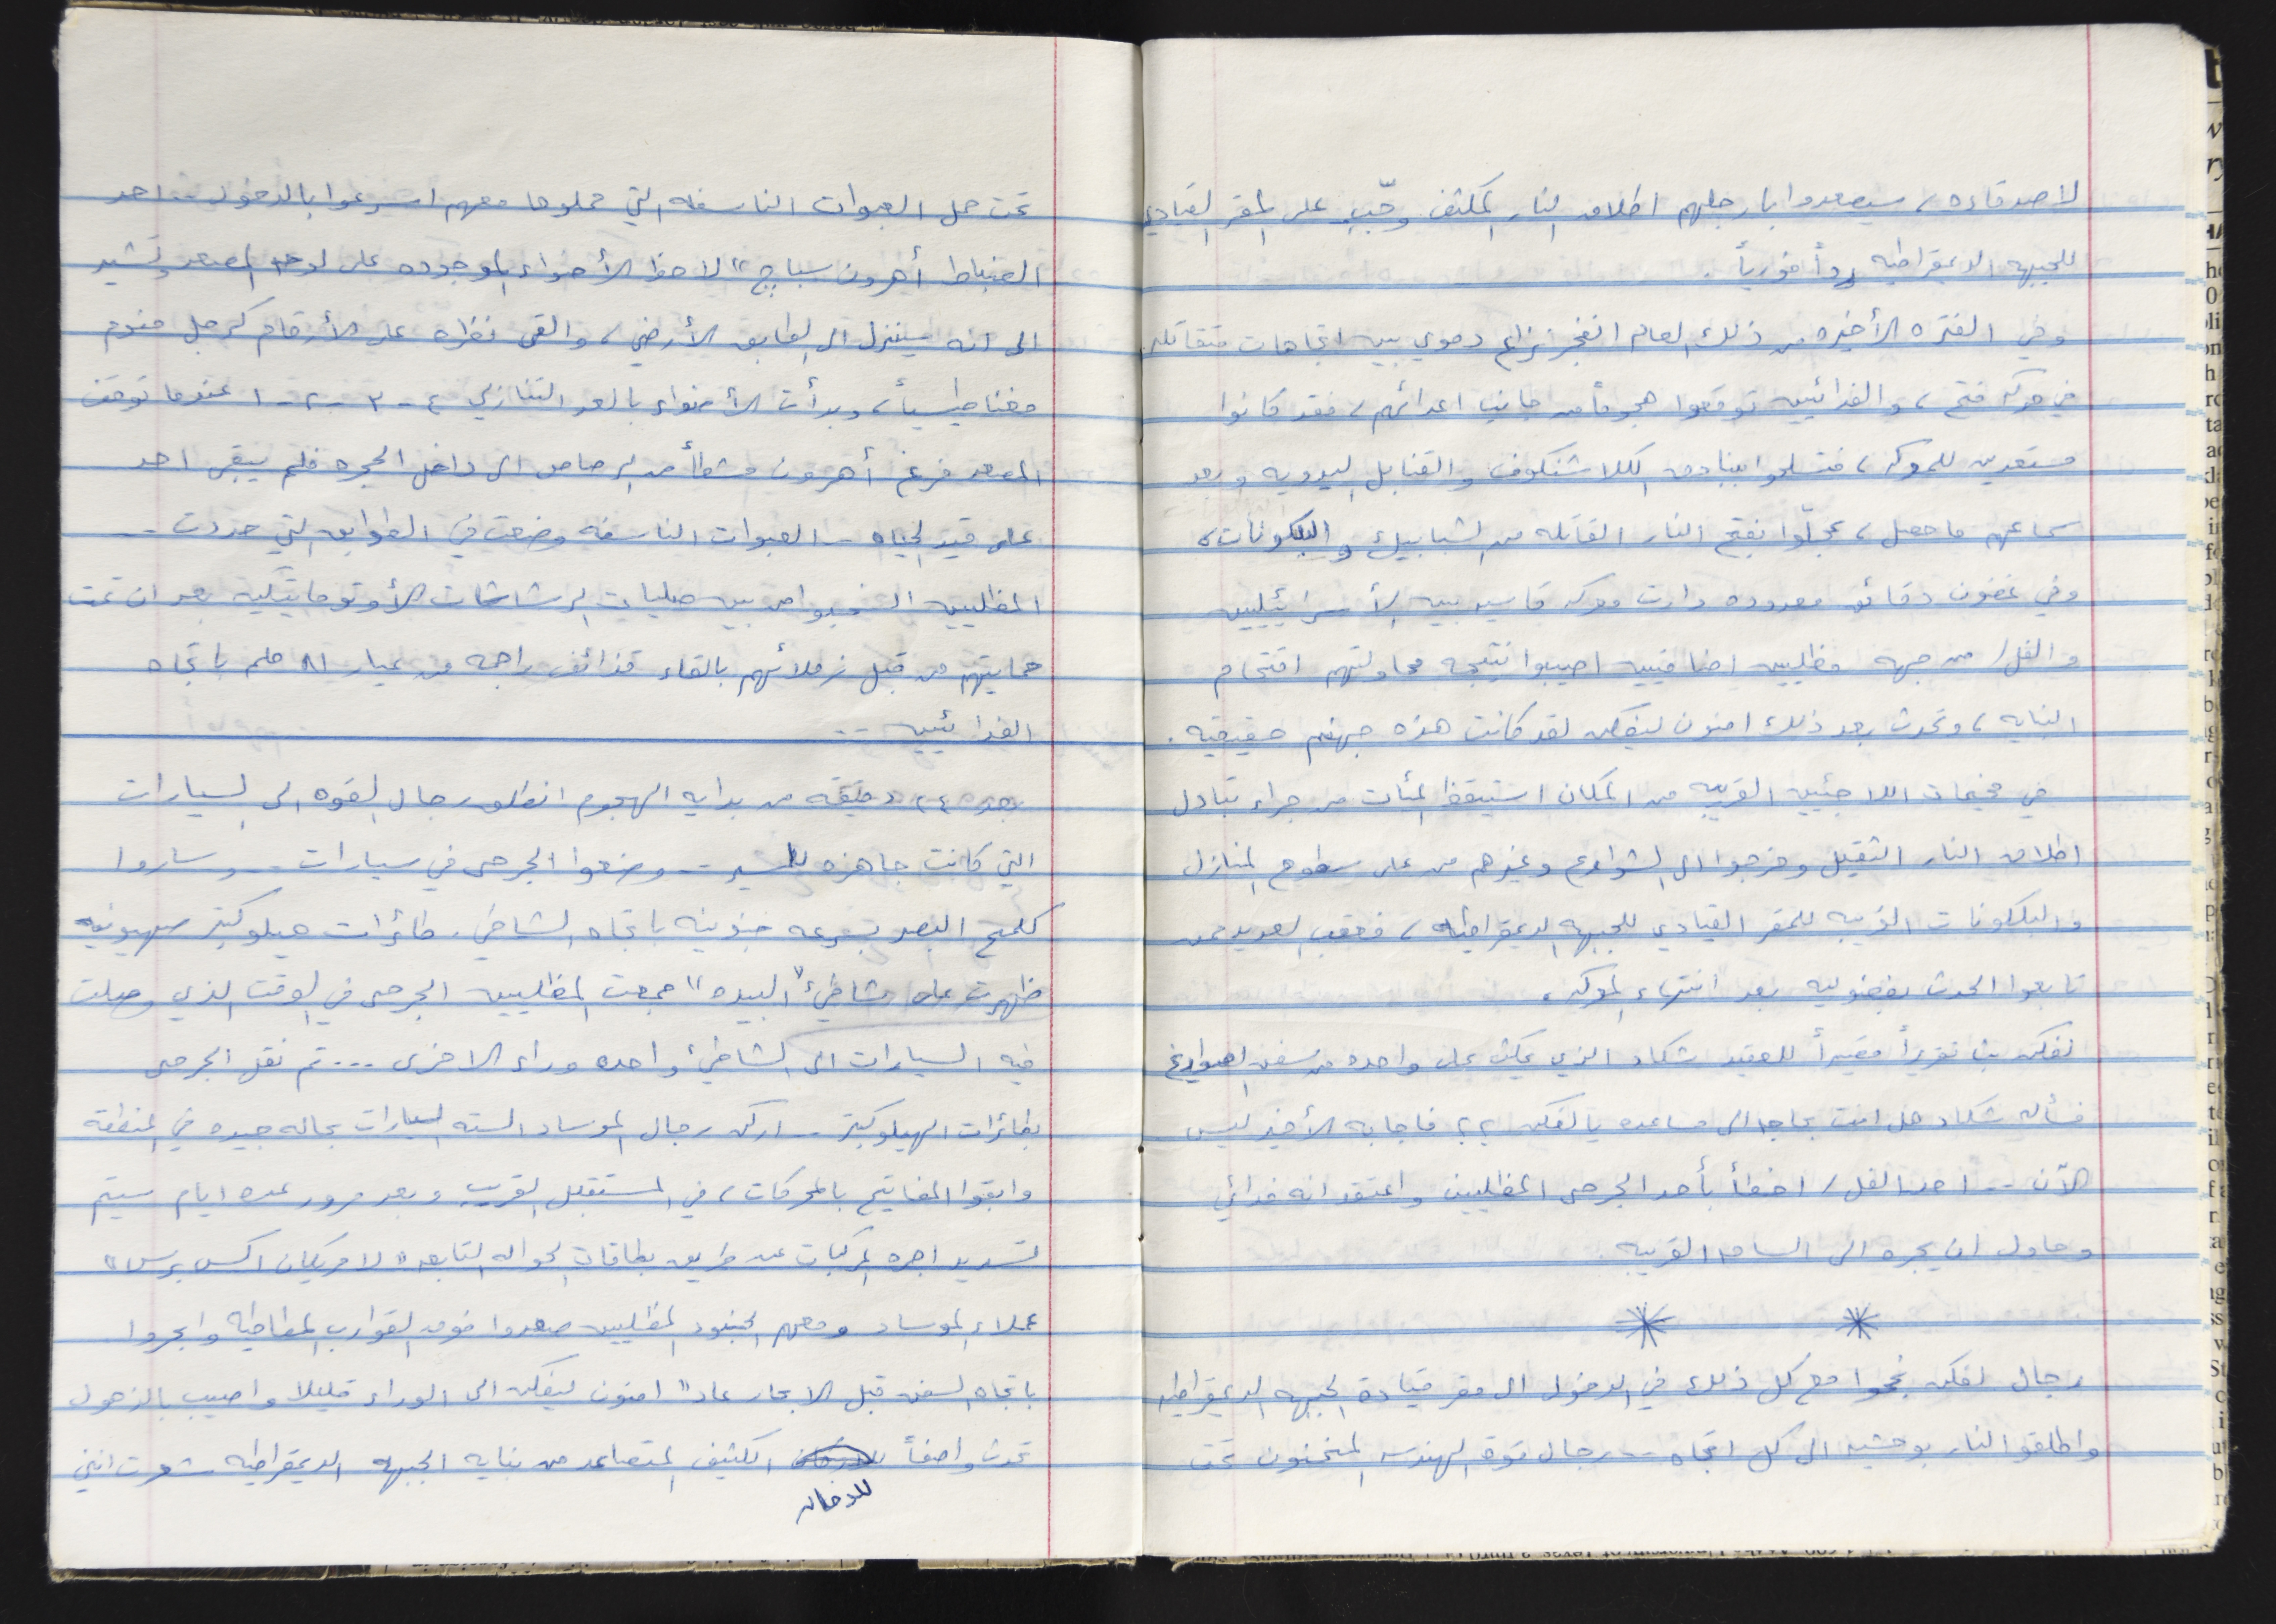 لاصدقاءه، سيصعدوا بارجلهم اطلاق النار المكثف وجّب على المقر القيادي
للجبهه الديمقراطيه رداً فورياً.
وفي الفتره الأخيره من ذلك العام انفجر نزاع دموي بين اتجاهات متقاتله
في حركه فتح، والفدائيين توقعوا هجوماً من جانب اعدائهم، فقد كانوا
مستعدين للمعركه، فتسلحوا ببنادق الكلاشنكوف والقنابل اليدويه وبعد
سماعهم ما حصل، عجلّوا بفتح النار القاتله من الشبابيك والبلكونات،
وفي غضون دقائق معدوده دارت معركه قاسيه بين الأسرائيليين
والفل/ من جهه مظليين اضافيين اصيبوا نتيجه محاولتهم اقتحام
البنايه، وتحدث بعد ذلك امنون ليفكن لقد كانت هذه جهنم حقيقيه.
في مخيمات اللاجئيين القريبه من المكان استيقظ المئات من جراء تبادل
اطلاق النار الثقيل وخرجوا الى الشوارع وغيرهم من على سطوح المنازل
والبلكونات القريبه للمقر القيادي للجبهه الديمقراطيه، فعقب العديد ممن
تابعوا الحدث بفضوليه بعد انتهاء المعركه.
لفكن بث تقريراً مقيراً للعقيد شكاد الذي يمكث على واحده من سفن الصواريخ
فسأله شكاد هل انت بحاجه الى مساعده يا لفكن ؟؟ فاجابه الأخير ليس
الآن -- احد الفل/ اخطأ بأحد الجرحى المظليين واعتقد انه فدائي
وحاول ان يجره الى الساحه القريبه.
* *
رجال لفكن نجحوا مع كل ذلك في الدخول الى مقر قيادة الجبهه الديمقراطيه
واطلقوا النار بوحشيه الى كل اتجاه -- رجال قوة الهندسه المنحنون تحت
تحت حمل العبوات الناسفه التي حملوها معهم اسرعوا بالدخول -- احد
الضباط أهرون سباج" لاحظ الأضواء الموجوده على لوحه المصعد وتشير
الى انه سينزل الى الطابق الأرضي، والقى نظراه على الأرقام كرجل منوم
مغناطيسياً، وبدأت الأضواء بالعد التنازلي ٤ - ٣ - ٢ - ١ عندما توقف
المصعد فرغ أهرون مشطاً من الرصاص الى داخل الحجره فلم يبقى احد
على قيد الحياه -- العبوات الناسفه وضعت في الطوابق التي حددت --
المظليين انسحبوا من بين صليات الرشاشات الأوتوماتيكيه بعد ان تمت
حمايتهم من قبل زملائهم بالقاء قذائف راجمه من عيار ٨١ ملم باتجاه
الفدائيين --
بعد ٢٤ دقيقه من بدايه الهجوم انطلق رجال القوه الى السيارات
التي كانت جاهزه للسير -- وضعوا الجرحى في سيارات -- وساروا
كلمح البصر بسرعه جنونيه باتجاه الشاطئ، طائرات هيلوكبتر صهيونيه
ظهرت على شاطئ "البيده" جمعت المظليين الجرحى في الوقت الذي وصلت
فيه السيارات الى الشاطئ واحده وراء الاخرى ... تم نقل الجرحى
بطائرات الهيلوكبتر -- ترك رجال الموساد السته السيارات بحاله جيده في المنطقه
وابقوا المفاتيح بالمحركات، في المستقبل القريب وبعد مرور عده ايام سيتم
تسديد اجره المركبات عن طريق بطاقات الحواله التابعه "لامريكان اكس برس"
عملاء الموساد ومعهم الجنود المظليين صعدوا فوق القوارب المطاطيه وابحروا
باتجاه السفن قبل الابحار عاد" امنون ليفكن الى الوراء قليلا واصيب بالذهول
تحدث واصفاً للدخان الكثيف المتصاعد من بنايه الجبهه الديمقراطيه شعرت انني